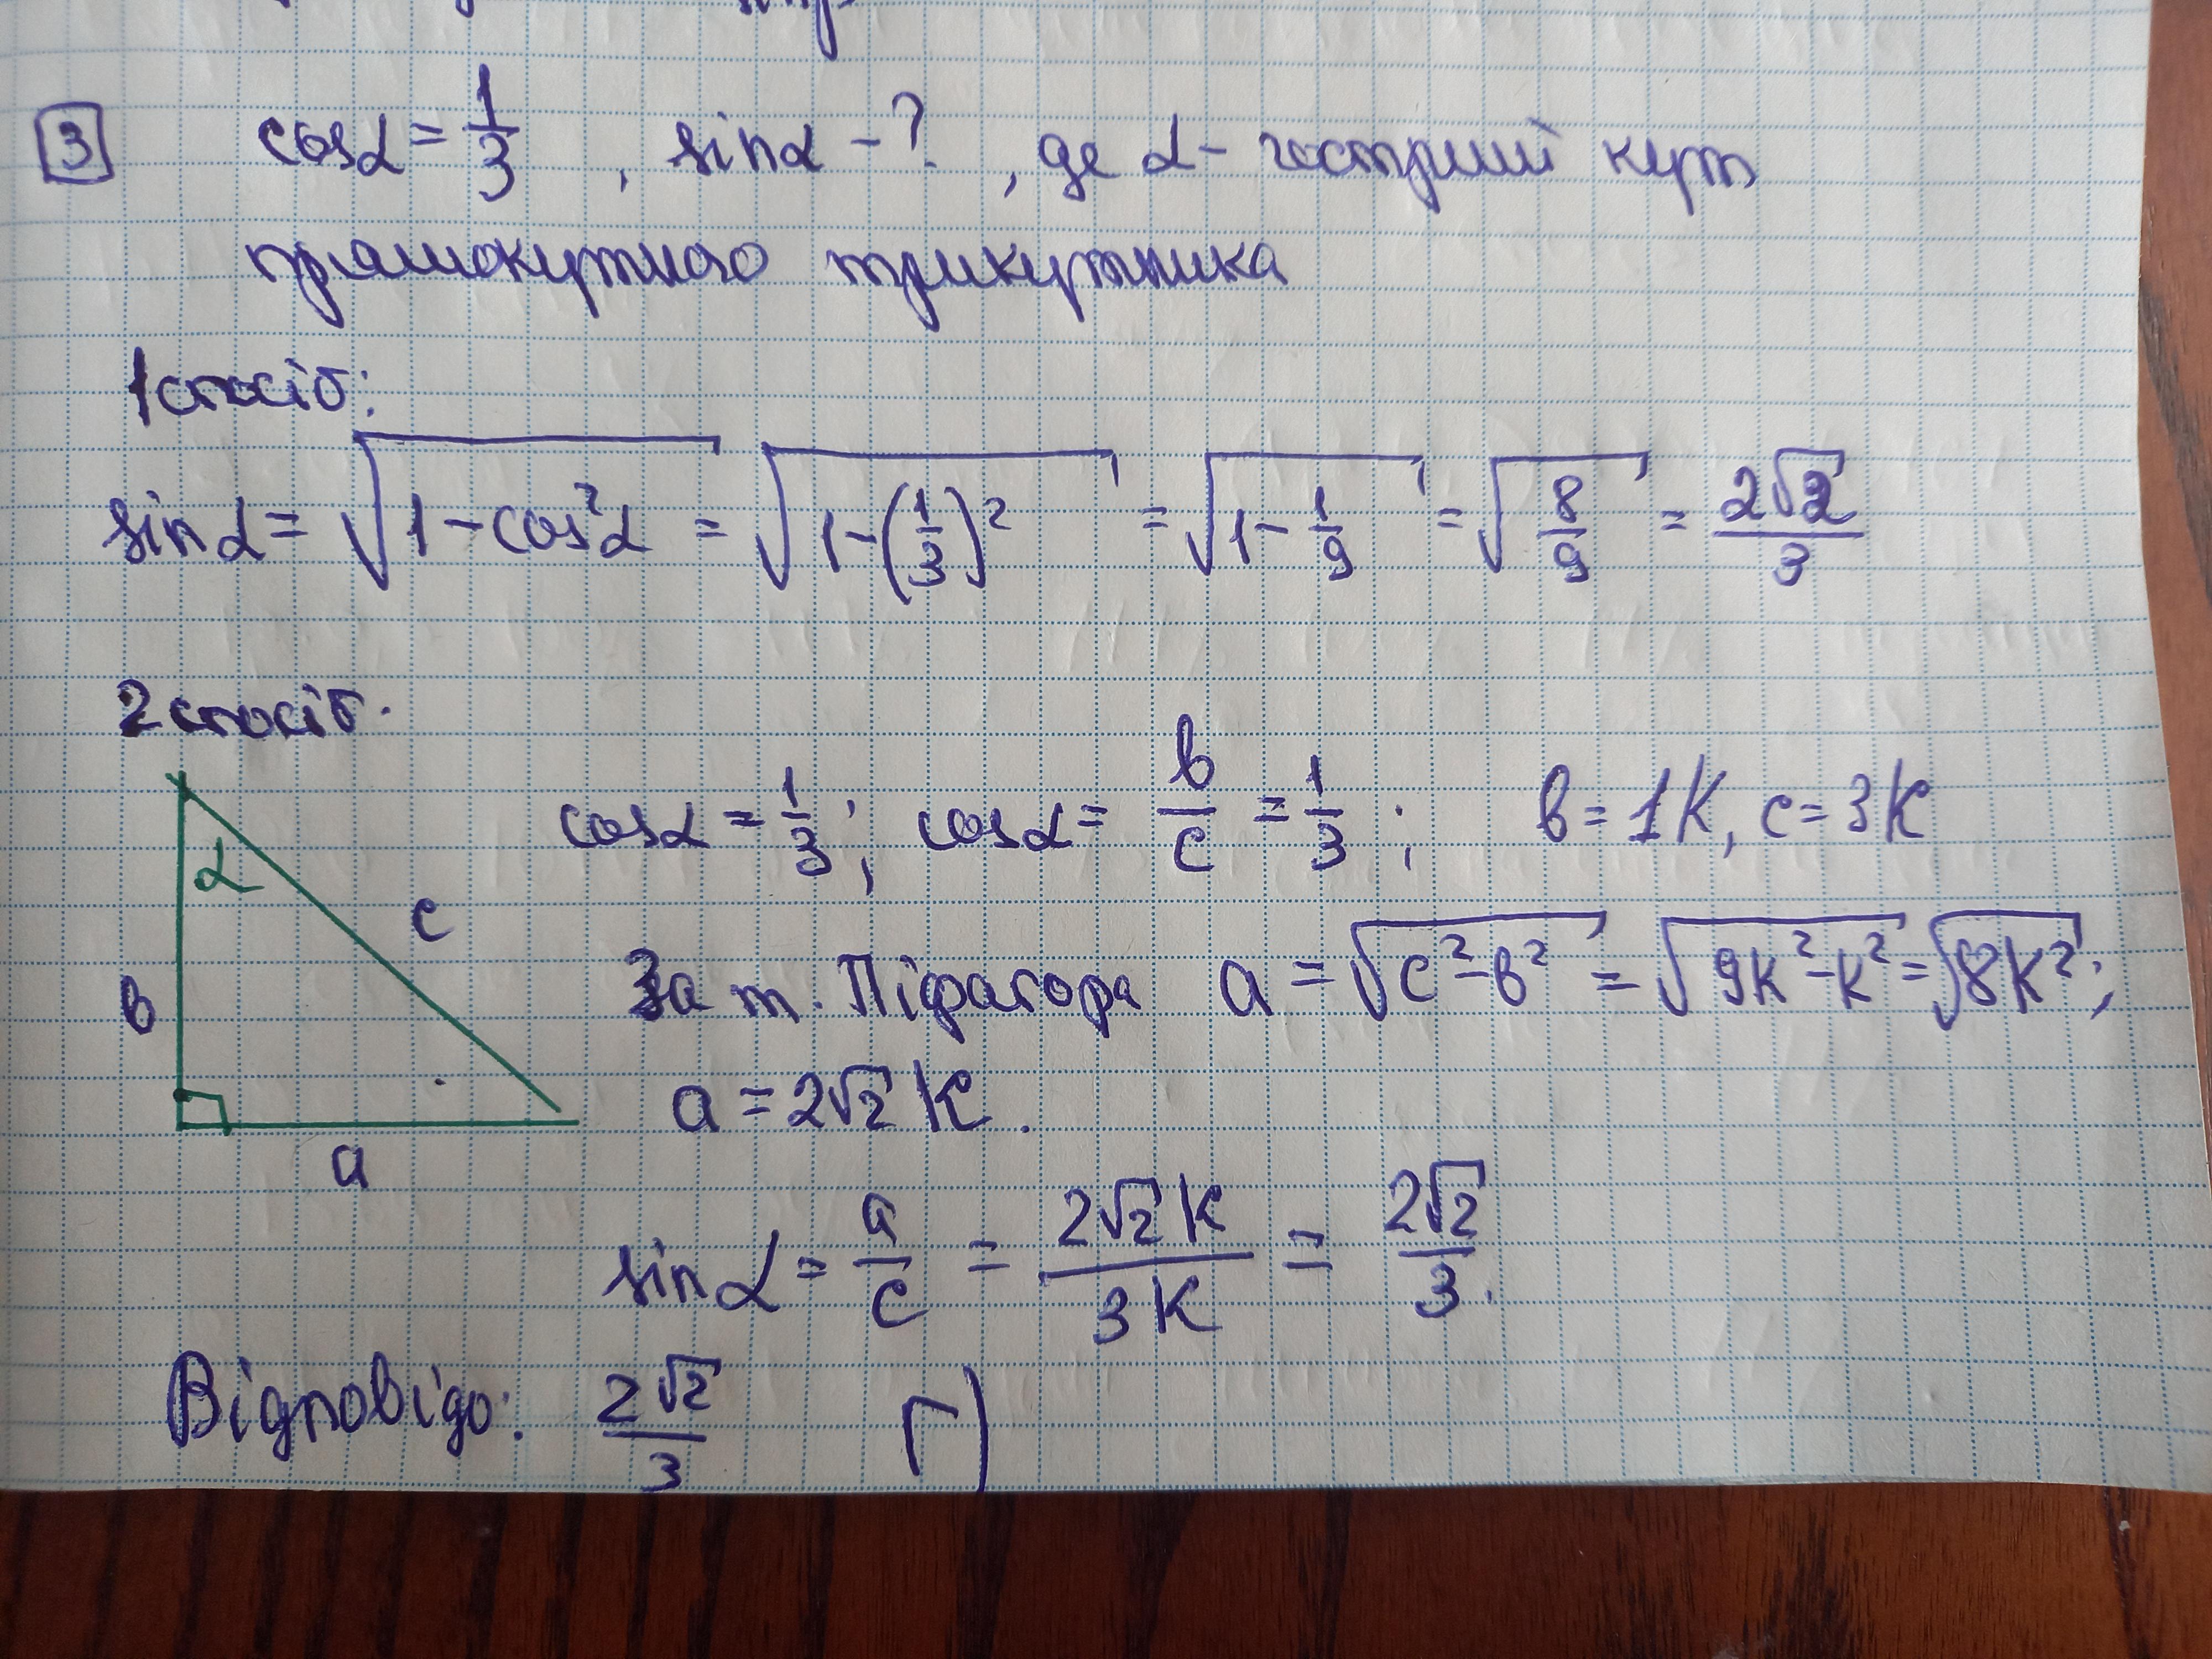 3 cosα = 1/3, sinα - ?, де α - гострий кут
прямокутного трикутника
1 спосіб:
sinα = √(1 - cos²α) = √(1 - (1/3)²) = √(1 - 1/9) = √(8/9) = 2√2/3
2 спосіб.
cosα = 1/3; cosα = в/с = 1/3; в = 1К, с = 3К
α
с
в
За т. Піфагора а = √(с² - в²) = √(9К² - К²) = √(8К²);
а = 2√2 К.
а
sinα = а/с = 2√2 К/3К = 2√2/3.
Відповідь: 2√2/3 Г)